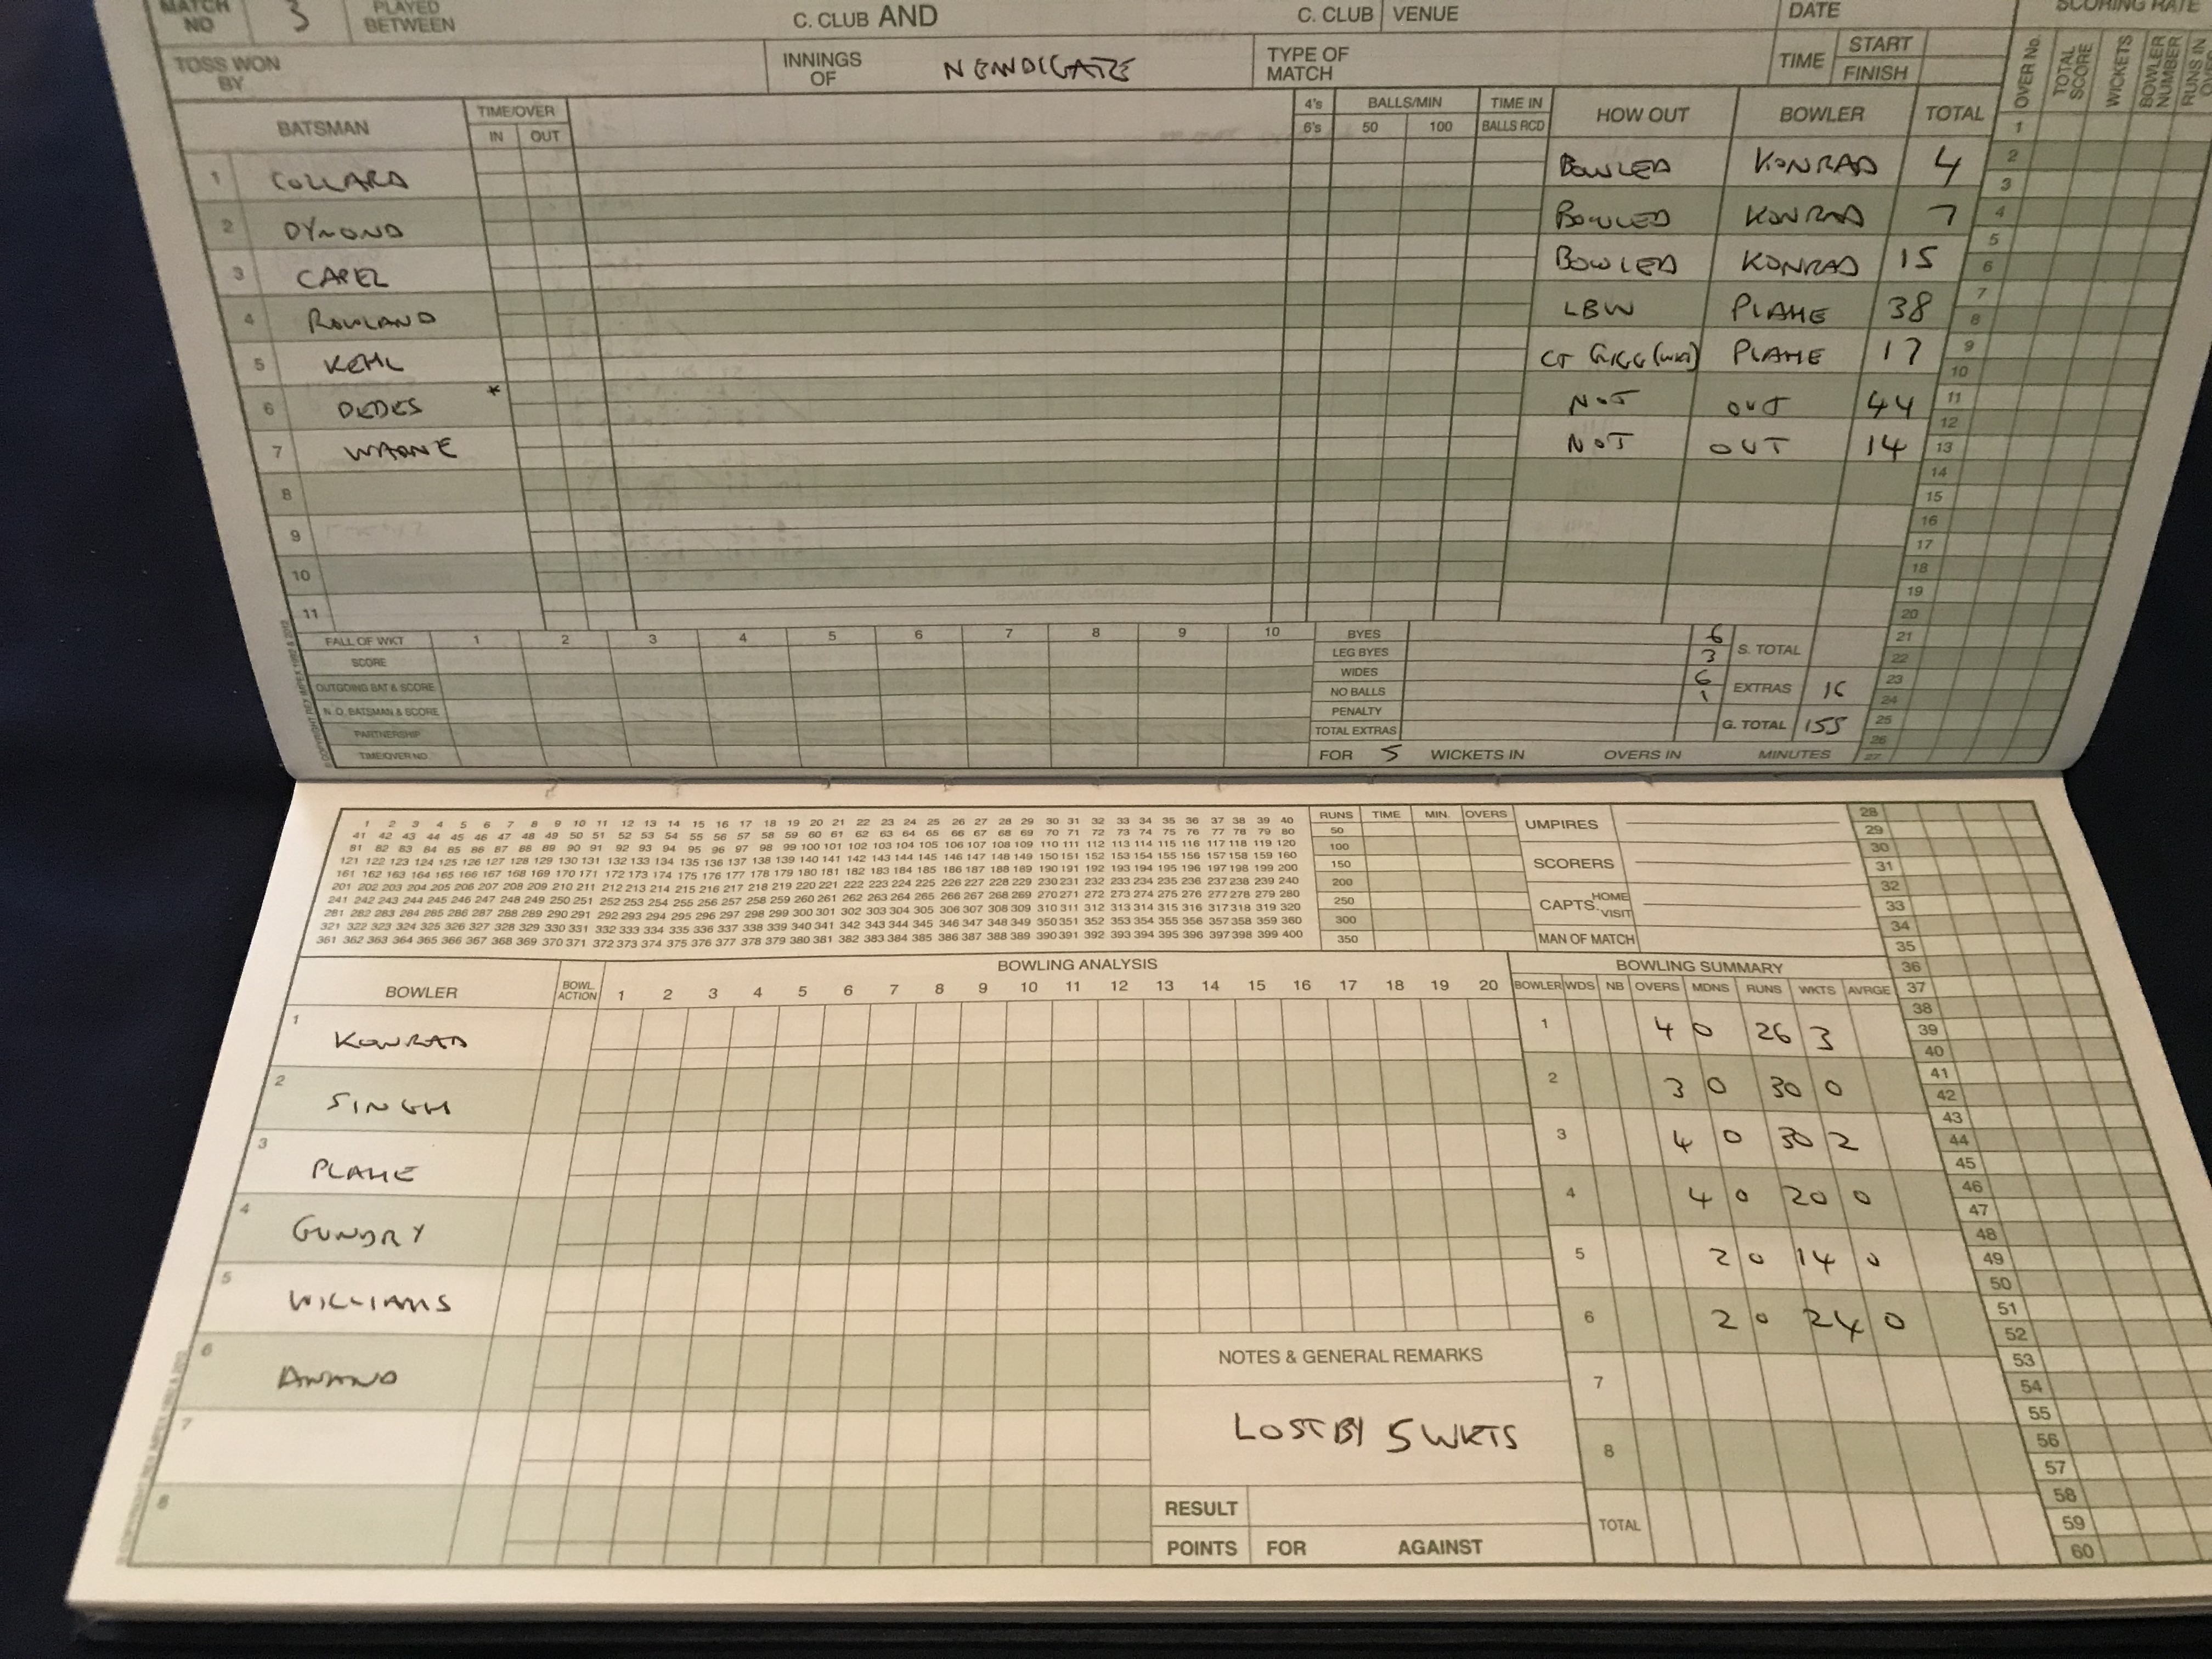 MATCH NO 3 PLAYED BETWEEN C. CLUB AND C. CLUB VENUE DATE SCORING RATE
TOSS WON BY INNINGS OF NEWDIGATE TYPE OF MATCH TIME START FINISH
BATSMAN TIME/OVER IN OUT 4's 6's BALLS/MIN 50 100 TIME IN BALLS RCD HOW OUT BOWLER TOTAL OVER No. TOTAL SCORE WICKETS BOWLER NUMBER RUNS IN
1 COLLARD BOWLED KONRAD 4
2 DYMOND BOWLED KONRAD 7
3 CAPEL BOWLED KONRAD 15
4 ROWLAND LBW PLAHE 38
5 KEHL CT GIGG (WKT) PLAHE 17
6 DEDES * NOT OUT 44
7 WARNE NOT OUT 14
8
9
10
11
FALL OF WKT 1 2 3 4 5 6 7 8 9 10
SCORE
OUTGOING BAT & SCORE
N.O. BATSMAN & SCORE
PARTNERSHIP
TIME/OVER NO.
BYES 6 S. TOTAL
LEG BYES 3
WIDES 6 EXTRAS 16
NO BALLS 1
PENALTY G. TOTAL 155
TOTAL EXTRAS
FOR 5 WICKETS IN OVERS IN MINUTES
1 2 3 4 5 6 7 8 9 10 11 12 13 14 15 16 17 18 19 20 21 22 23 24 25 26 27
1 2 3 4 5 6 7 8 9 10 11 12 13 14 15 16 17 18 19 20 21 22 23 24 25 26 27 28 29 30 31 32 33 34 35 36 37 38 39 40
41 42 43 44 45 46 47 48 49 50 51 52 53 54 55 56 57 58 59 60 61 62 63 64 65 66 67 68 69 70 71 72 73 74 75 76 77 78 79 80
81 82 83 84 85 86 87 88 89 90 91 92 93 94 95 96 97 98 99 100 101 102 103 104 105 106 107 108 109 110 111 112 113 114 115 116 117 118 119 120
121 122 123 124 125 126 127 128 129 130 131 132 133 134 135 136 137 138 139 140 141 142 143 144 145 146 147 148 149 150 151 152 153 154 155 156 157 158 159 160
161 162 163 164 165 166 167 168 169 170 171 172 173 174 175 176 177 178 179 180 181 182 183 184 185 186 187 188 189 190 191 192 193 194 195 196 197 198 199 200
201 202 203 204 205 206 207 208 209 210 211 212 213 214 215 216 217 218 219 220 221 222 223 224 225 226 227 228 229 230 231 232 233 234 235 236 237 238 239 240
241 242 243 244 245 246 247 248 249 250 251 252 253 254 255 256 257 258 259 260 261 262 263 264 265 266 267 268 269 270 271 272 273 274 275 276 277 278 279 280
281 282 283 284 285 286 287 288 289 290 291 292 293 294 295 296 297 298 299 300 301 302 303 304 305 306 307 308 309 310 311 312 313 314 315 316 317 318 319 320
321 322 323 324 325 326 327 328 329 330 331 332 333 334 335 336 337 338 339 340 341 342 343 344 345 346 347 348 349 350 351 352 353 354 355 356 357 358 359 360
361 362 363 364 365 366 367 368 369 370 371 372 373 374 375 376 377 378 379 380 381 382 383 384 385 386 387 388 389 390 391 392 393 394 395 396 397 398 399 400
RUNS TIME MIN. OVERS
50
100
150
200
250
300
350
UMPIRES
SCORERS
CAPTS. HOME VISIT
MAN OF MATCH
BOWLING ANALYSIS BOWLING SUMMARY
BOWLER BOWL. ACTION 1 2 3 4 5 6 7 8 9 10 11 12 13 14 15 16 17 18 19 20 BOWLER WDS NB OVERS MDNS RUNS WKTS AVRGE
1 KONRAD 1 4 0 26 3
2 SINGH 2 3 0 30 0
3 PLAHE 3 4 0 30 2
4 GUNDRY 4 4 0 20 0
5 WILLIAMS 5 2 0 14 0
6 ANAND 6 2 0 24 0
7 7
8 8
TOTAL
NOTES & GENERAL REMARKS
LOST BY 5 WKTS
RESULT
POINTS FOR AGAINST
28 29 30 31 32 33 34 35 36 37 38 39 40 41 42 43 44 45 46 47 48 49 50 51 52 53 54 55 56 57 58 59 60